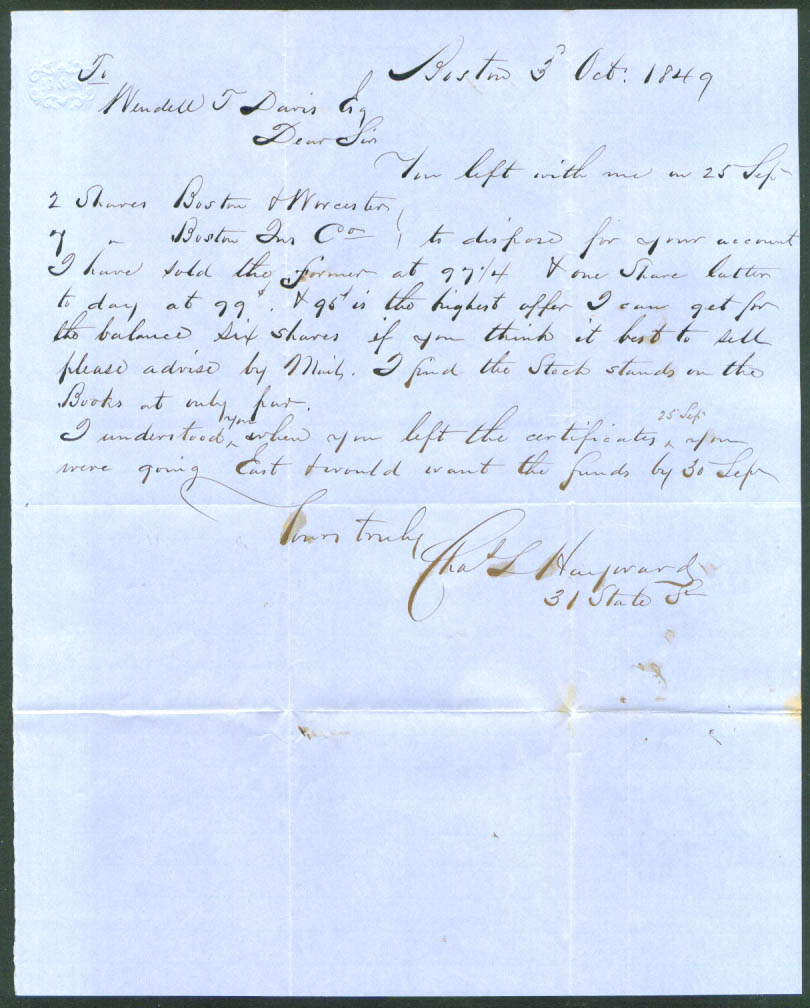 To Boston 3d Oct. 1849
Wendell T Davis Esq
Dear Sir
You left with me on 25 Sep
2 Shares Boston & Worcester
7 " Boston Ins Co } to dispose for your account
I have sold the former at 97 1/4 & one Share latter
to day at 99d. & 95d is the highest offer I can get for
the balance six shares if you think it best to sell
please advise by Mail. I find the Stock stands on the
Books at only par.
I understood you when you left the certificates 25 Sep you
were going East & would want the funds by 30 Sep
Yours truly
Chas L Hayward
31 State St